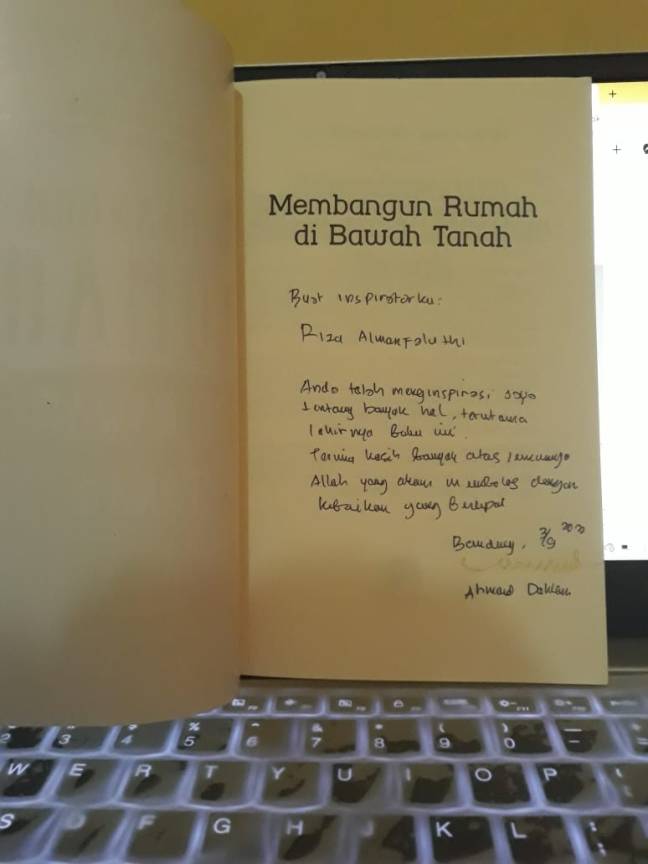 Membangun Rumah
di Bawah Tanah
Buat inspiratorku:
Riza Almanfaluthi
Anda telah menginspirasi saya
tentang banyak hal, terutama
lahirnya Buku ini.
Terima kasih banyak atas semuanya
Allah yang akan membalas dengan
kebaikan yang berlipat
Bandung, 2020
Ahmad Dahlan
% ^ & * ( )
2 3 4 5 6 7 8 9 0
W E R T Y U I O P
S D F G H J K L